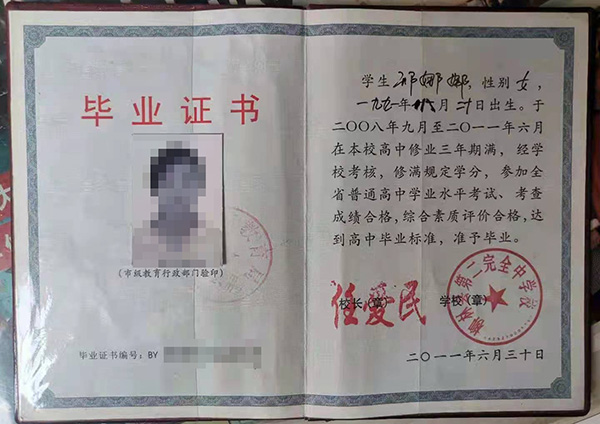 毕业证书
(市级教育行政部门验印)
毕业证书编号：BY
学生 邢娜娜，性别 女，
一九九一年 月二十日出生。于
二〇〇八年九月至二〇一一年六月
在本校高中修业三年期满，经学
校考核，修满规定学分，参加全
省普通高中学业水平考试、考查
成绩合格，综合素质评价合格，达
到高中毕业标准，准予毕业。
校长（章） 学校（章）
任爱民
第一完全中学校
二〇一一年六月三十日